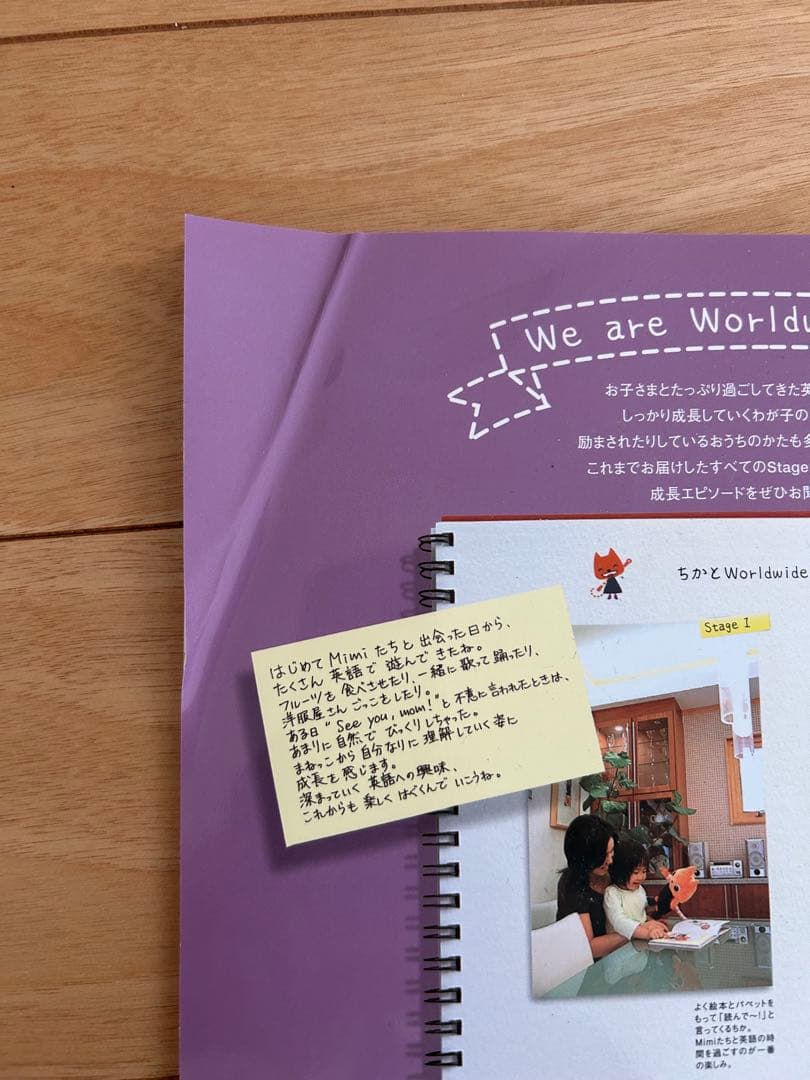 We are Worldw
お子さまとたっぷり過ごしてきた英
しっかり成長していくわが子の
励まされたりしているおうちのかたも多
これまでお届けしたすべてのStage
成長エピソードをぜひお聞
ちかとWorldwide
Stage 1
はじめてMimiたちと出会った日から、
たくさん英語で遊んできたね。
フルーツを食べさせたり、一緒に歌って踊ったり、
洋服屋さんごっこをしたり。
ある日“See you, mom!”と不意に言われたときは、
あまりに自然でびっくりしちゃった。
まねっこから自分なりに理解していく姿に
成長を感じます。
深まっていく英語への興味、
これからも楽しくはぐくんでいこうね。
よく絵本とパペットを
もって「読んで〜!」と
言ってくるちか。
Mimiたちと英語の時
間を過ごすのが一番
の楽しみ。